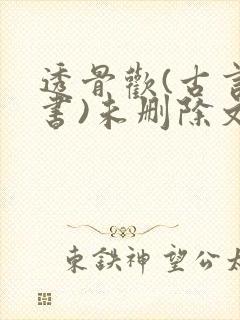 透骨歡(古言
書)未删除文
東鉄神望公太